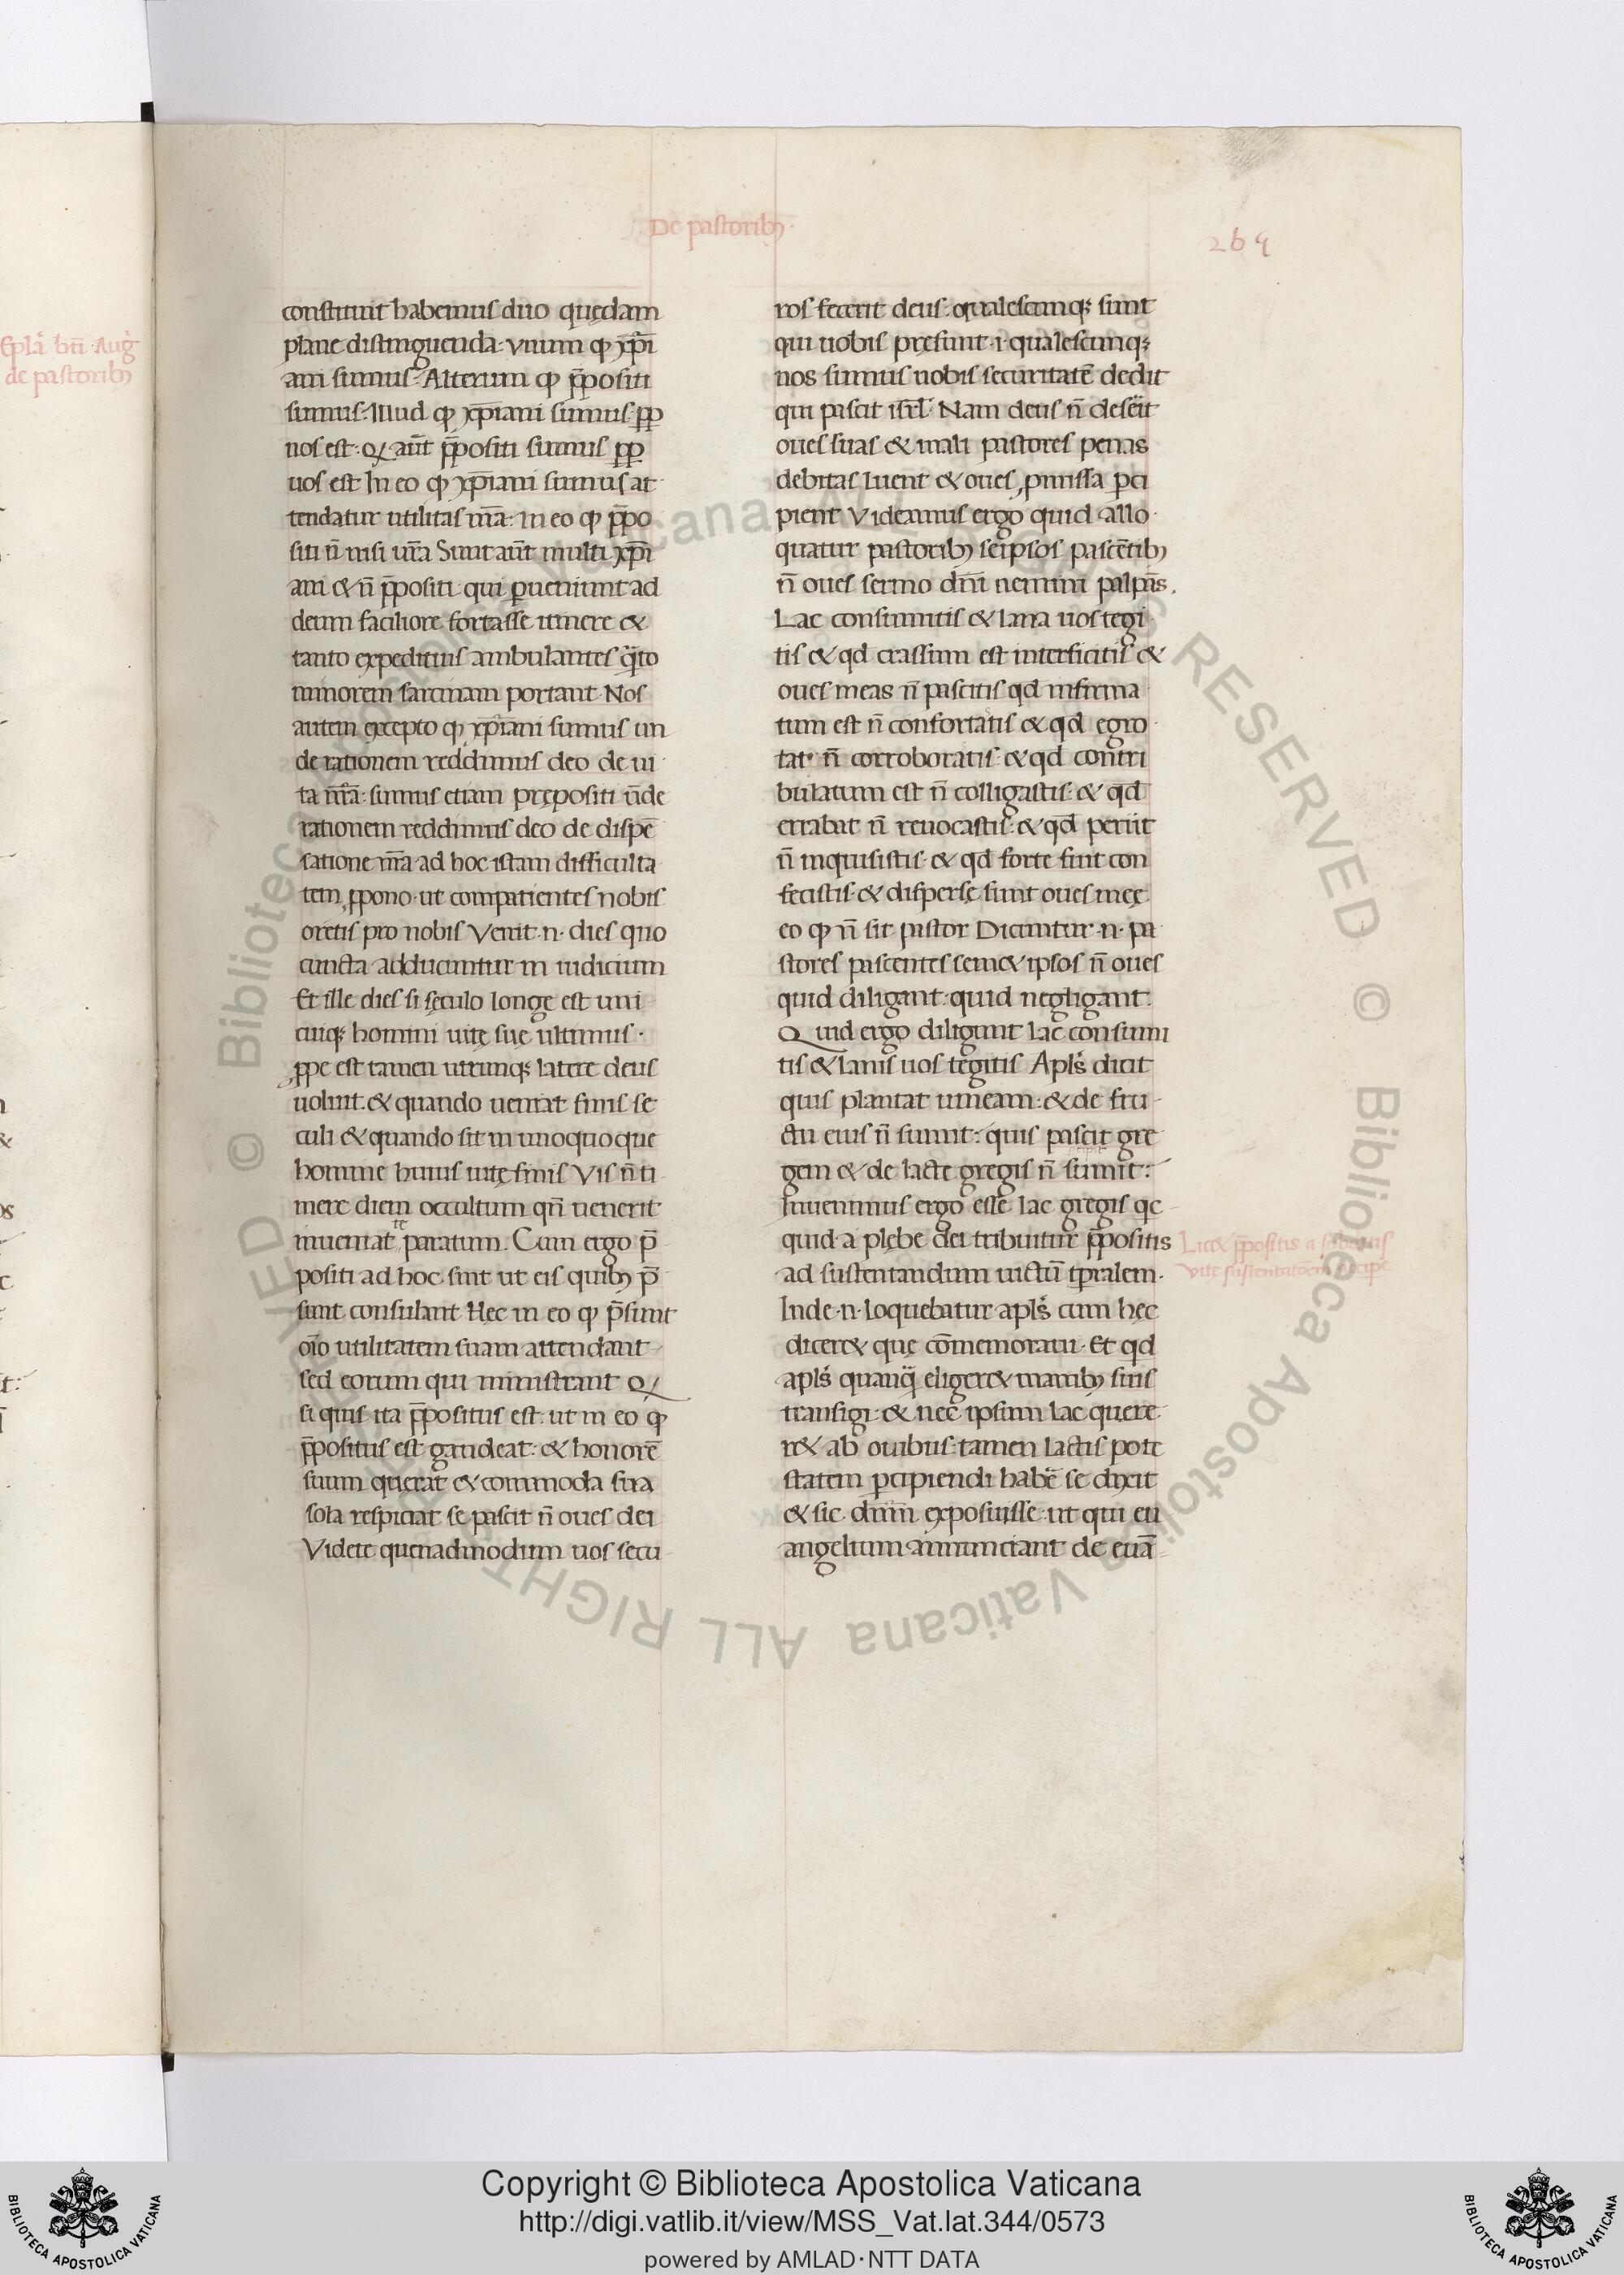 De pastoribꝫ
269
Epla bti Aug
de pastoribꝫ
constituit habemus duo quędam
plane distinguenda· vnum ꝙ xp̄i
ani sumus· Alterum ꝙ p̄positi
sumus· Illud ꝙ xp̄iani sumus· ꝓp
nos est· Q aūt p̄positi sumus ꝓp
uos est In eo ꝙ xp̄iani sumus at
tendatur utilitas nr̄a· in eo ꝙ p̄po
siti n̄ nisi ur̄a Sunt aūt multi xp̄i
ani & n̄ p̄positi· qui ꝑueniunt ad
deum faciliore fortasse itinere &
tanto expeditius ambulantes q̄to
minorem sarcinam portant· Nos
autem excepto ꝙ xp̄iani sumus un
de rationem reddimus deo de ui
ta nr̄a· sumus etiam prępositi ūde
rationem reddimus deo de dispē
satione nr̄a· ad hoc istam difficulta
tem ꝓpono· ut compatientes nobis
oretis pro nobis Venit·n· dies quo
cuncta adducuntur in iudicium
Et ille dies si sęculo longe est uni
cuiqꝫ homini uitę suę ultimus·
ꝓpe est tamen utrunqꝫ latere deus
uoluit· & quando ueniat finis se
culi & quando sit in unoquoque
homine huius uitę finis Vis n̄ ti
mere diem occultum qn̄ uenerit
inueniat te paratum. Cum ergo p̄
positi ad hoc sint ut eis quibꝫ p̄
sunt consulant Nec in eo ꝙ p̄sunt
oīo utilitatem suam attendant
sed eorum qui ministrant Q
si quis ita p̄positus est· ut in eo ꝙ
p̄positus est gaudeat· & honorē
suum querat & commoda sua
sola respiciat se pascit n̄ oues dei
Videte quenadmodum uos secu
ros fecerit deus· qualescunqꝫ sunt
qui uobis pręsunt·i· qualescunqꝫ
nos sumus uobis securitatē dedit
qui pascit isrl̄· Nam deus n̄ deserit
oues suas & mali pastores penas
debitas luent & oues ꝓmissa ꝑci
pient Videamus ergo quid allo
quatur pastoribꝫ seipsos pascētibꝫ
n̄ oues sermo dn̄i nemini palpās.
Lac consumitis & lana uos tegi
tis & qd crassum est interficitis &
oues meas n̄ pascitis qd infirma
tum est n̄ confortatis & qd egro
tat· n̄ corroboratis· & qd contri
bulatum est n̄ colligastis· & qd
errabat n̄ reuocastis· & qd periit
n̄ inquisistis· & qd forte fuit con
fecistis· & disperse sunt oues meę
eo ꝙ n̄ sit pastor Dicuntur·n· pa
stores pascentes semet ipsos n̄ oues
quid diligant· quid negligant·
Quid ergo diligunt lac consumi
tis & lanis uos tegitis Apls dicit
quis plantat uineam· & de fru
ctu eius n̄ sumit· quis pascit gre
gem & de lacte gregis n̄ sumit·
Inuenimus ergo esse lac gregis qc
quid a plebe dei tribuitur p̄positis
ad sustentandum uictū tp̄ralem·
Inde·n· loquebatur apls cum hęc
diceret que cōmemoraui· Et qd
apls quanq̄ eligeret manibꝫ suis
transigi· & nec ipsum lac quere
ret ab ouibus· tamen lactis pote
statem ꝑcipiendi habē se dixit
& sic dn̄m exposuisse· ut qui eu
angelium annunciant de euā
Licet p̄positis a subditis
vite sustentatōem